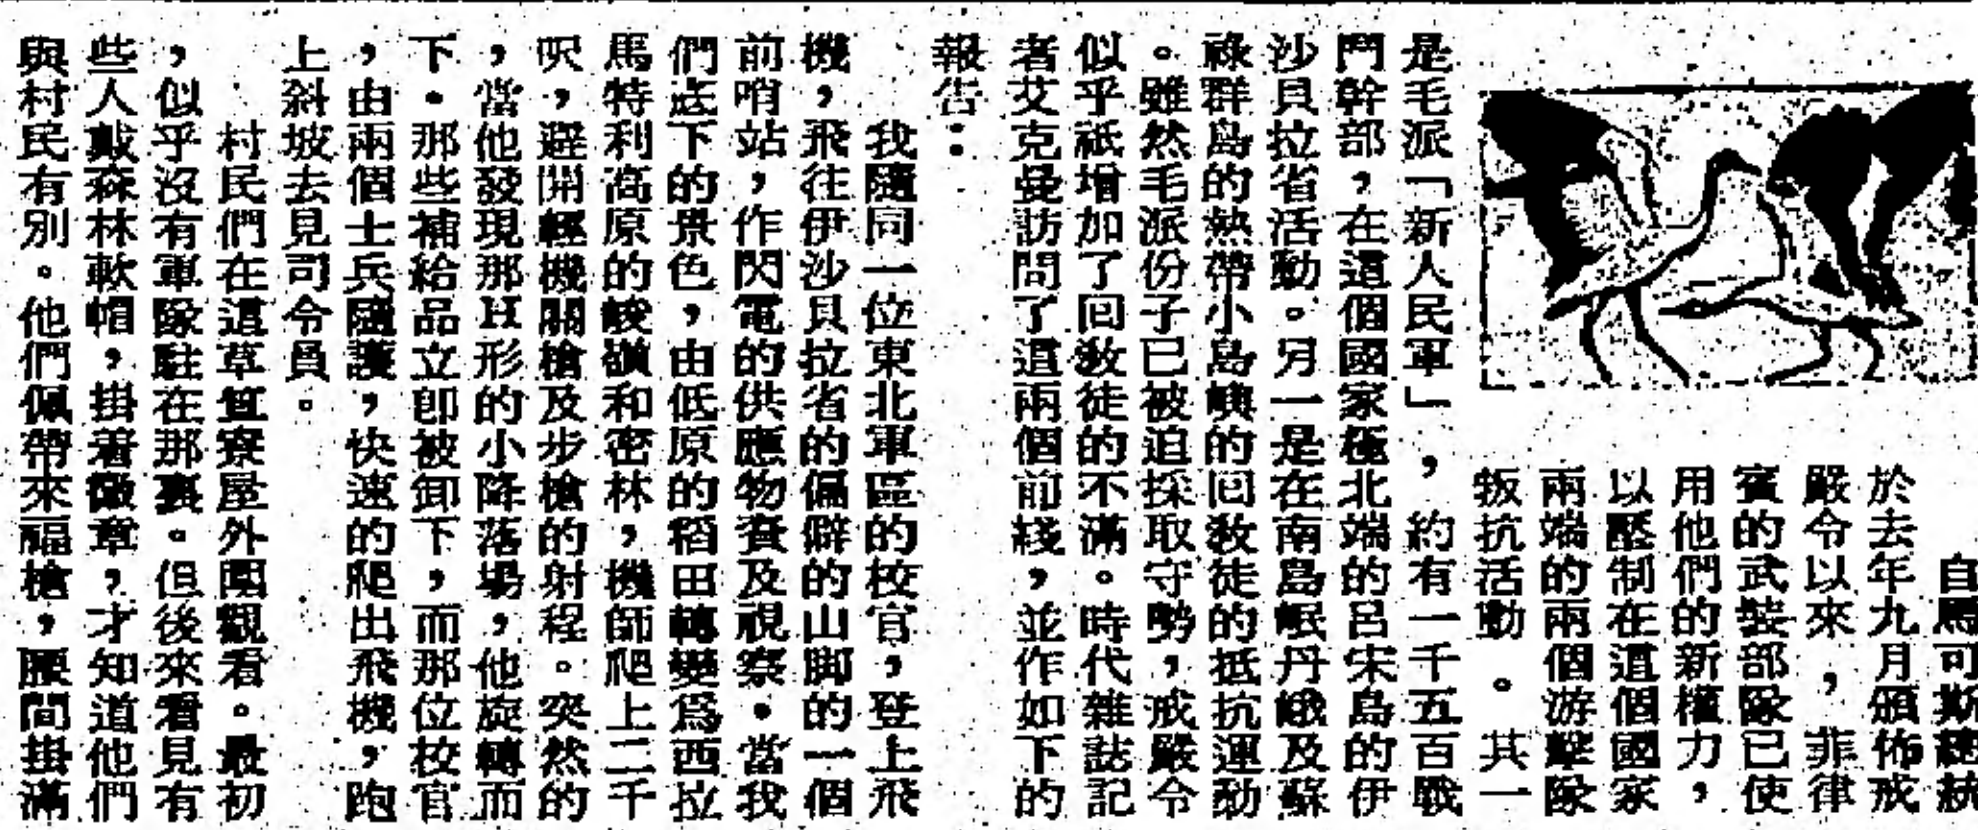 自馬可斯總統
於去年九月頒佈戒
嚴令以來，菲律
賓的武裝部隊已使
用他們的新權力，
以壓制在這個國家
兩端的兩個游擊隊
叛抗活動。其一
是毛派「新人民軍」，約有一千五百戰
鬥幹部，在這個國家極北端的呂宋島的伊
沙貝拉省活動。另一是在南島岷丹峨及蘇
祿群島的熱帶小島嶼的回教徒的抵抗運動
。雖然毛派份子已被迫採取守勢，戒嚴令
似乎祇增加了回教徒的不滿。時代雜誌記
者艾克曼訪問了這兩個前綫，並作如下的
報告：
我隨同一位東北軍區的校官，登上飛
機，飛往伊沙貝拉省的偏僻的山脚的一個
前哨站，作閃電的供應物資及視察。當我
們底下的景色，由低原的稻田轉變爲西拉
馬特利高原的峻嶺和密林，機師爬上二千
呎，避開輕機關槍及步槍的射程。突然的
，當他發現那H形的小降落場，他旋轉而
下。那些補給品立卽被卸下，而那位校官
，由兩個士兵隨護，快速的爬出飛機，跑
上斜坡去見司令員。
村民們在這草笪寮屋外圍觀看。最初
，似乎沒有軍隊駐在那裏。但後來看見有
些人戴森林軟帽，掛着徽章，才知道他們
與村民有別。他們佩帶來福槍，腰間掛滿